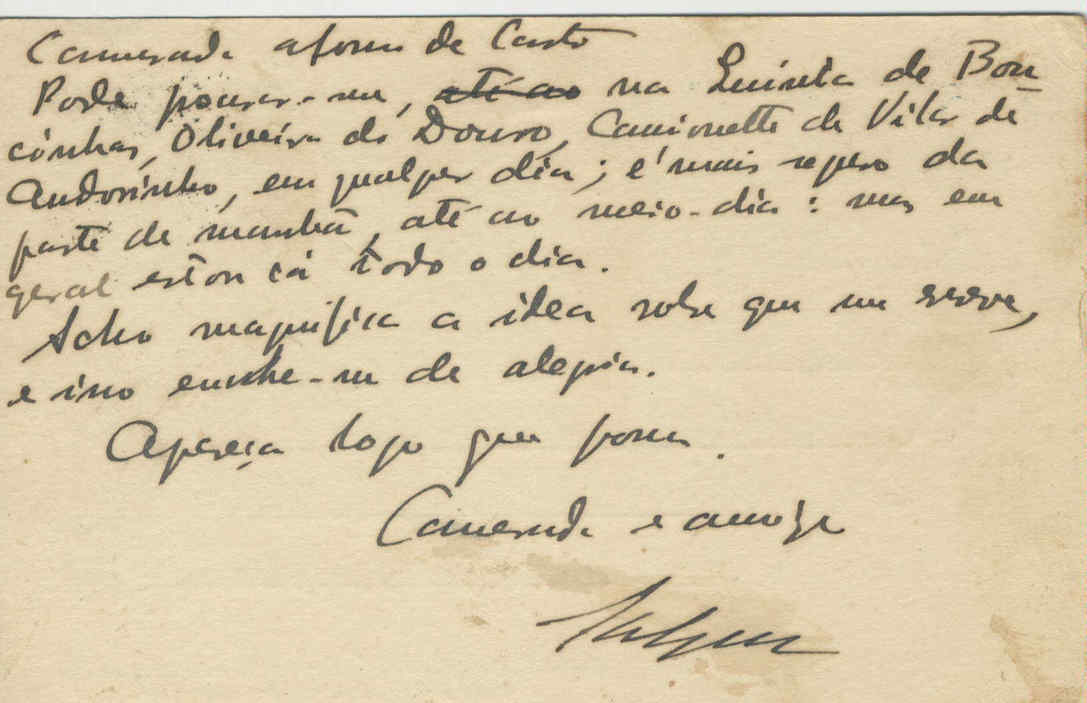 Camarada Afonso de Castro
Pode procurar-me, até ao na Quinta de Bou-
cinhas, Oliveira do Douro, Camionette de Vilar de
Andorinho, em qualquer dia; é mais seguro da
parte da manhã, até ao meio-dia: mas em
geral estou cá todo o dia.
Acho magnífica a idea sobre que me escreve,
e isso enche-me de alegria.
Apareça logo que possa.
Camarada e amigo